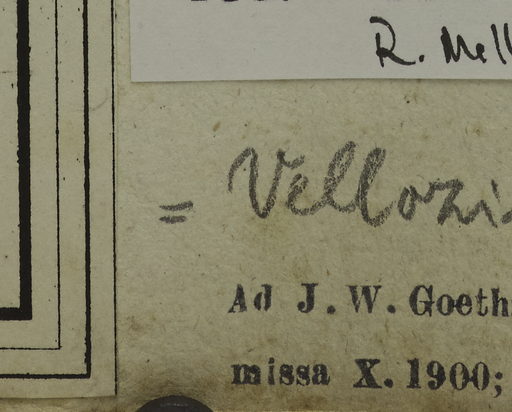 R. Mell
= Vellozi
Ad J. W. Goeth
missa X. 1900;